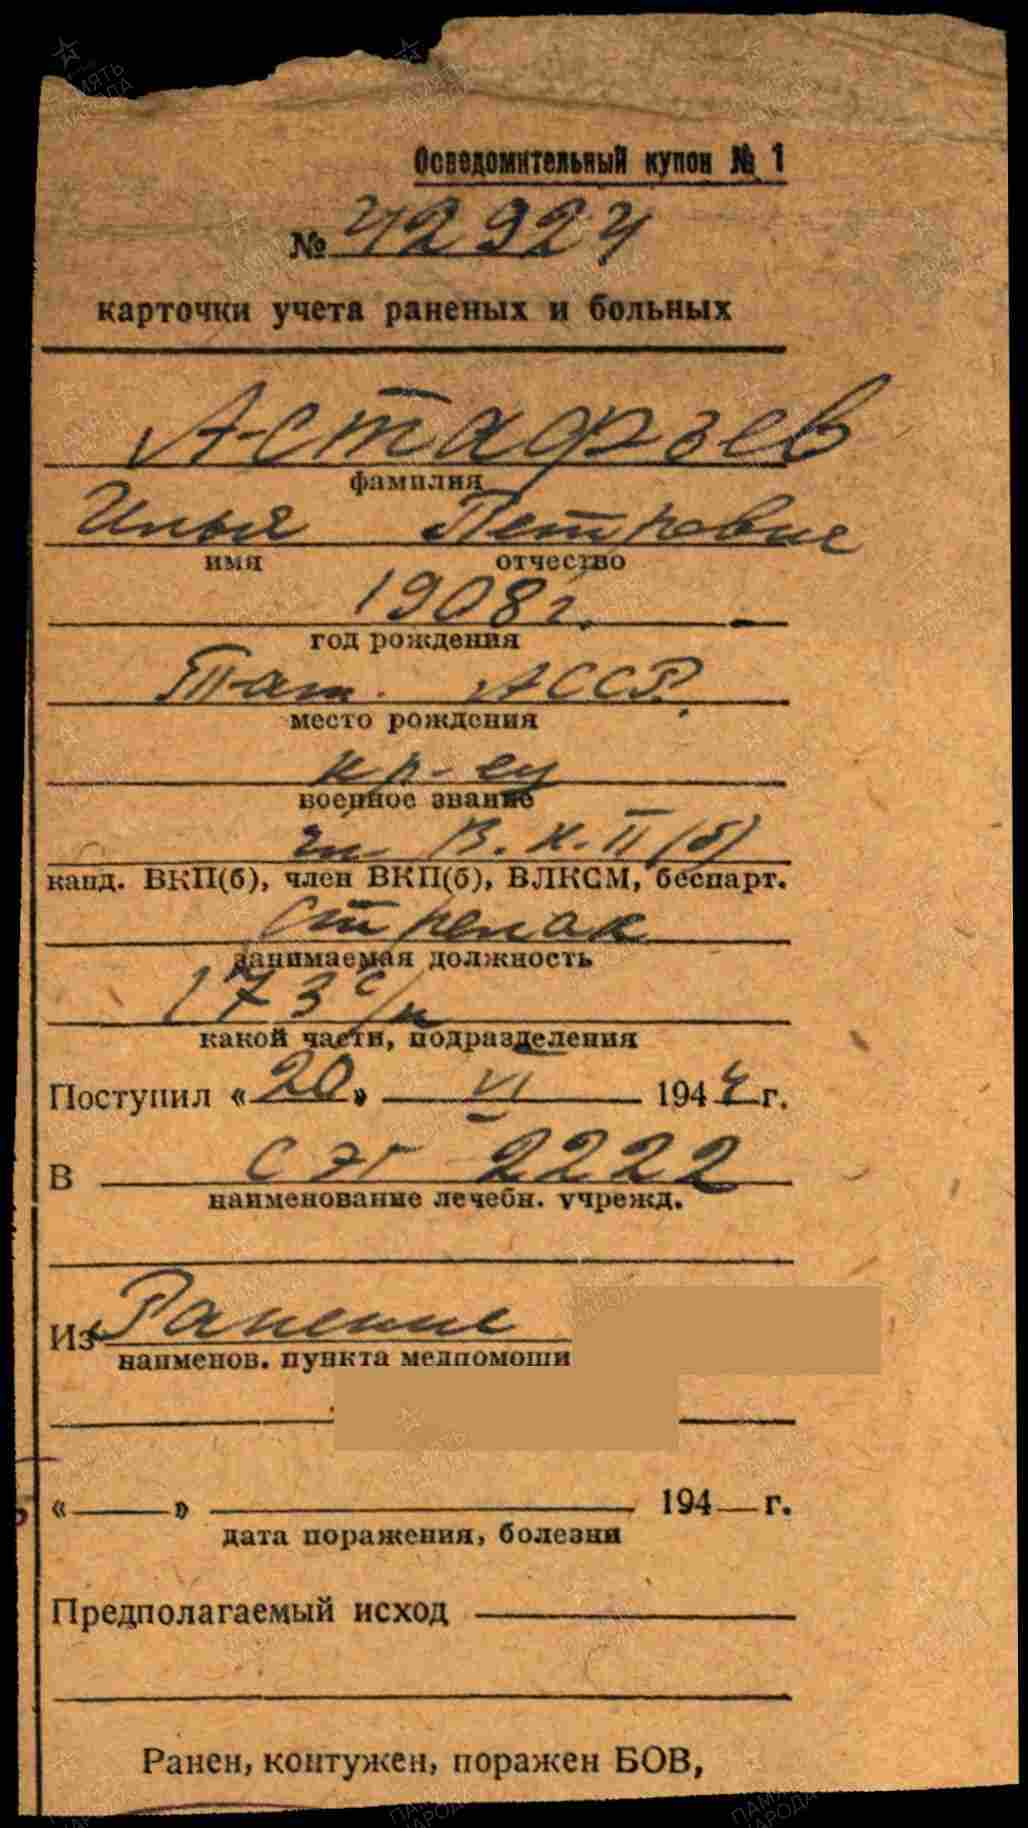 Осведомительный купон № 1
№ 42924
карточки учета раненых и больных
Астафьев
фамилия
Илья Петрович
имя отчество
1908 г.
год рождения
Тат. АССР.
место рождения
кр-ец
военное звание
чл. В.К.П(б)
канд. ВКП(б), член ВКП(б), ВЛКСМ, беспарт.
стрелок
занимаемая должность
173 с/п
какой части, подразделения
Поступил «20» VI 1944 г.
В СЭГ 2222
наименование лечебн. учрежд.
Из Ранение
наименов. пункта медпомощи
« » 194 г.
дата поражения, болезни
Предполагаемый исход
Ранен, контужен, поражен БОВ,